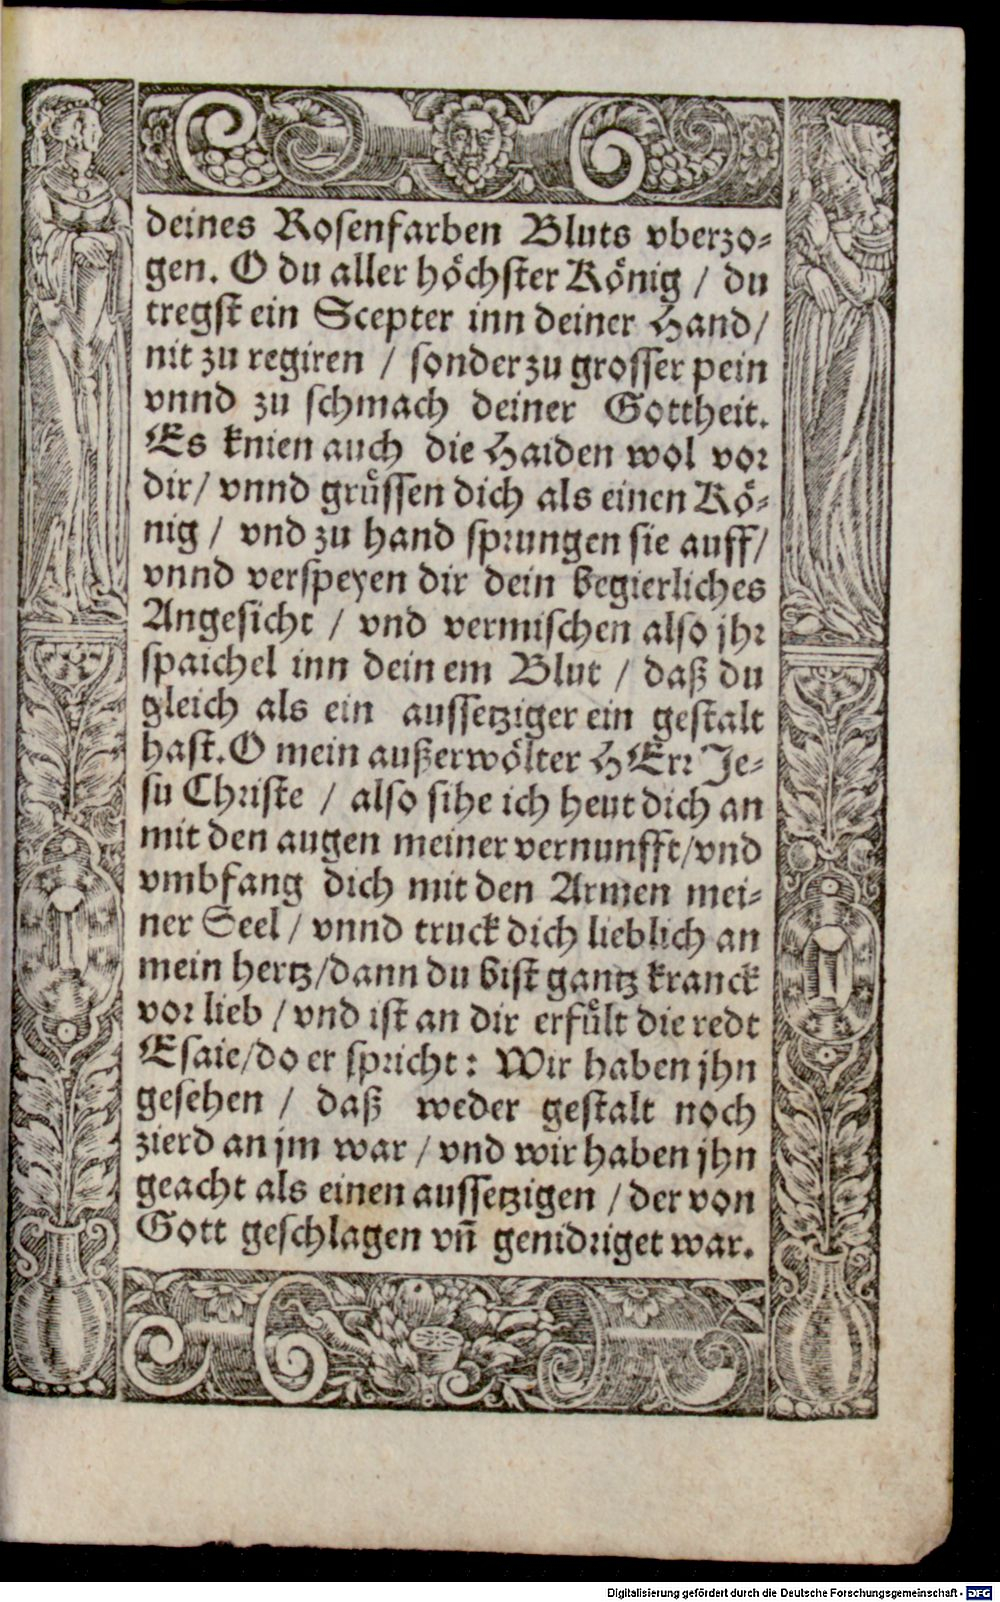 deines Rosenfarben Bluts vberzo⸗
gen. O du aller höchster König / du
tregst ein Scepter inn deiner Hand/
nit zu regiren / sonder zu grosser pein
vnnd zu schmach deiner Gottheit.
Es knien auch die Haiden wol vor
dir/ vnnd grüssen dich als einen Kö⸗
nig / vnd zu hand sprungen sie auff/
vnnd verspeyen dir dein begierliches
Angesicht / vnd vermischen also jhr
spaichel inn dein em Blut / daß du
gleich als ein aussetziger ein gestalt
hast. O mein außerwölter HErr Je⸗
su Christe / also sihe ich heut dich an
mit den augen meiner vernunfft/vnd
vmbfang dich mit den Armen mei⸗
ner Seel / vnnd truck dich lieblich an
mein hertz/dann du bist gantz kranck
vor lieb / vnd ist an dir erfült die redt
Esaie/do er spricht: Wir haben jhn
gesehen / daß weder gestalt noch
zierd an jm war / vnd wir haben jhn
geacht als einen aussetzigen / der von
Gott geschlagen vñ genidriget war.
Digitalisierung gefördert durch die Deutsche Forschungsgemeinschaft - DFG